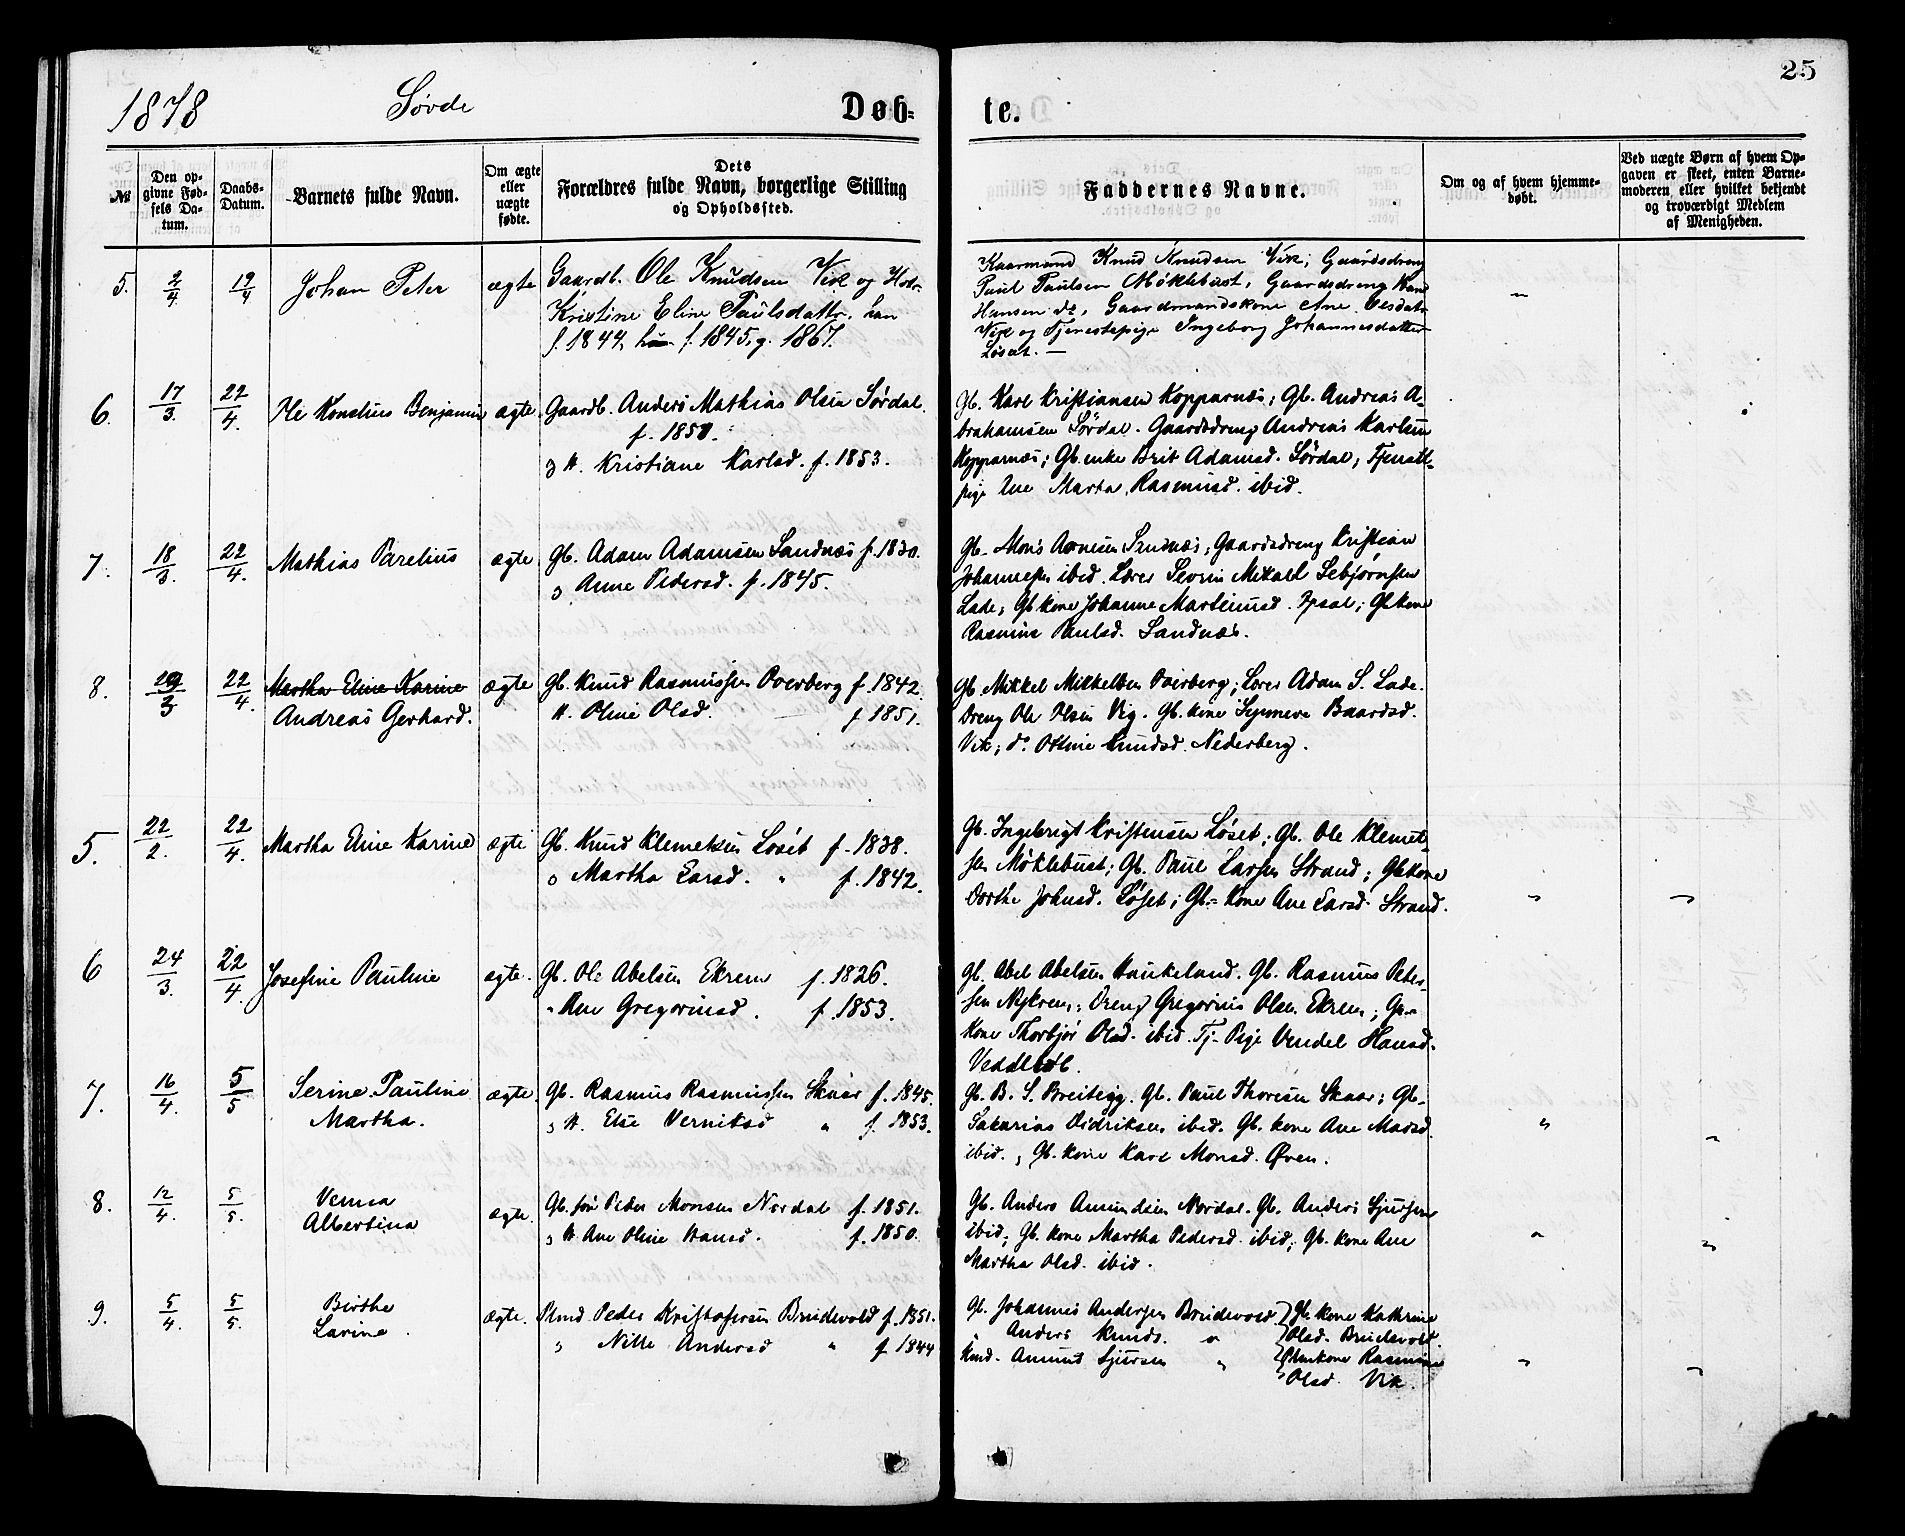 25
1878 Søvde Døb- te.
№
Den opgivne Fødsels Datum.
Daabs-Datum.
Barnets fulde Navn.
Om ægte eller uægte fødte.
Dets Forældres fulde Navn, borgerlige Stilling og Opholdssted.
Faddernes Navne.
Om og af hvem hjemmedøbt.
Ved uægte Børn af hvem Opgaven er skeet, enten Barnemoderen eller hvilket bekjendt og troværdigt Medlem af Menigheden.
5. 2/4 19/4 Johan Peter ægte
Gaardb. Ole Knudsen Vik og Hstr.
Kristine Eline Paulsdattr. han
f. 1844, hun f. 1845, g. 1867.
Kaarmand Knud Knudsen Vik; Gaardsdreng
Paul Paulsen Møklebust, Gaardsdreng
Hansen do, Gaardmandskone Ane
Vik og Tjenestepige Ingeborg Johannesdatter
Løset. —
6. 17/3. 22/4. Ole Kornelius Benjamin ægte
Gaardb. Anders Mathias Olsen Sørdal.
f. 1850.
og H. Kristiane Karlsd. f. 1853.
Gb. Karl Kristiansen Kopparnæs; Gb. Andreas A-
brahamsen Sørdal. Gaardsdreng Andreas Karlsen
Kopparnæs; Gb. enke Brit Adamsd. Sørdal; Tjenest-
pige Ane Marta Rasmusd. ibid.
7. 18/3. 22/4. Mathias Parelius ægte
Gb. Adam Adamsen Sandnæs f. 1830.
og Anne Pedersd. f. 1845.
Gb. Mons Arnesen Sandnæs; Gaardsdreng Kristian
Johannessen ibid. Lærer Severin Mikael Sebjørnsen
Lade; Gb kone Johanne Martinusd. ; Gb kone
Rasmine Paulsd. Sandnæs.
8. 29/3 22/4. Martha Eline Karine
Andreas Gerhard. ægte
Gb. Knud Rasmussen Overberg f. 1842.
H. Oline Olsd. f. 1851.
Gb. Mikkel Mikkelsen Overberg; Lærer Adam S. Lade.
Dreng Ole Olsen Vig. Gb. kone Synneve Baardsd.
Vik; do. Oline Knudsd. Nederberg.
5. 22/2. 22/4. Martha Eline Karine ægte
Gb. Knud Klemetsen Løset f. 1838.
og Martha Larsd. " f. 1842.
Gb. Ingebrigt Kristensen Løset; Gb. Ole Klemet-
sen Møklebust; Gb. Paul Larsen Strand; Gb kone
Dorthe Johnsd. Løset; Gb.- Kone Ane Larsd. Strand.
6 24/3. 22/4. Josefine Pauline ægte.
Gb. Ole Abelsen Ekrem f. 1826.
" Ane Gregoriusd. f. 1853.
Gb. Abel Abelsen Haukeland. Gb. Rasmus Peter-
sen Nykrem; Dreng Gregorius Olsen Ekrem; Gb-
kone Thorbjør Olsd. ibid. Tj- Pige Vendel Hansd.
7. 16/4. 5/5 Serine Pauline
Martha. ægte.
Gb. Rasmus Rasmussen Skaar f. 1845.
og H. Else Verniksd " f. 1853.
Gb. B. S. Breitegg. Gb. Paul Thoresen Skaar; Gb-
Sakarias Didriksen ibid. Gb. kone Ane Marsd.
ibid., Gb. kone Kari Monsd. Øven.
8. 12/4. 5/5. Verna
Albertina ægte.
Gb. søn Peder Monsen Nordal f. 1851.
og H. Ane Oline Hansd. f. 1850.
Gb. Anders Amundsen Nordal. Gb. Anders Sjursen
ibid; Gb. kone Martha Pedersd. ibid; Gb. kone Ane
Martha Olsd. ibid.
9. 5/4. 5/5. Birthe
Larine. ægte.
Peder Kristofersen Brudevold f. 1851.
og Nille Andersd " f. 1844
Gb. Johannes Andersen Brudevold } Gb. kone Kathrine
" Anders Knuds. " } Olsd. Brudevold.
Amund Sjursen " } kone Rasmine
Olsd. Vik.